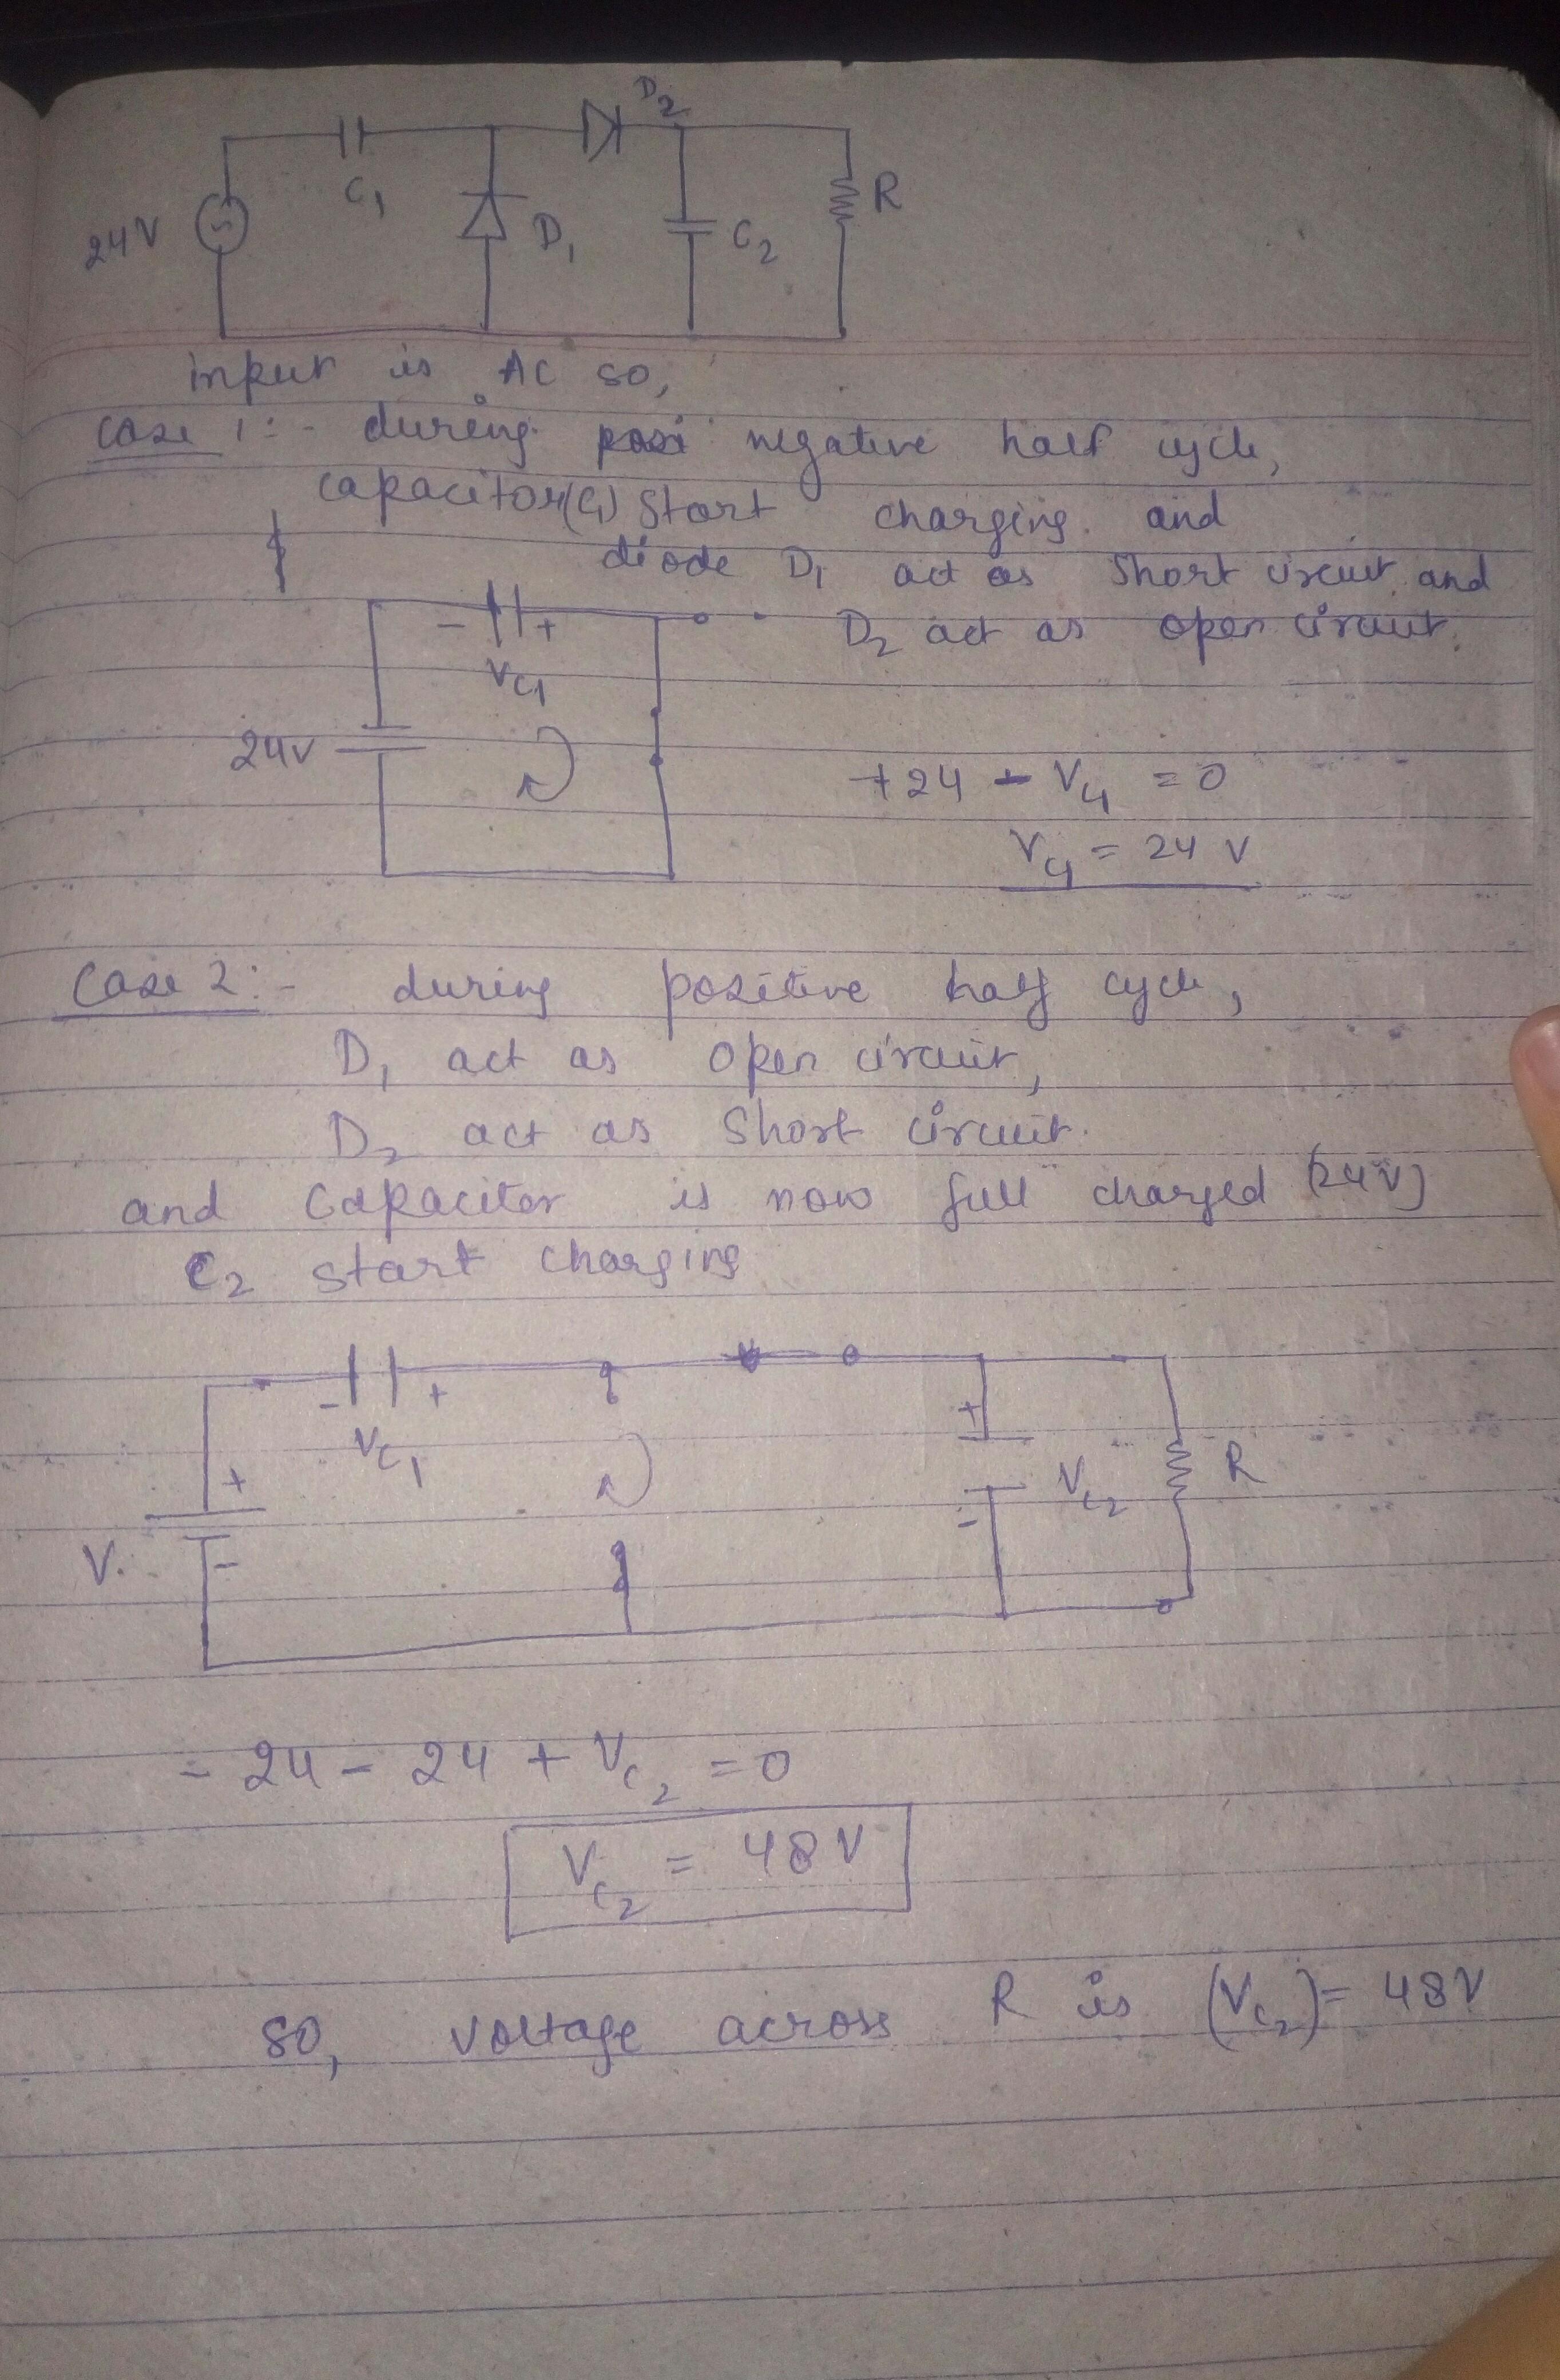 D2
C1
24V
D1
C2
R
input is AC so,
Case 1:- during posi negative half cycle,
capacitor(C1) Start charging and
diode D1 act as Short circuit and
D2 act as open circuit.
- +
VC1
24V
+24 - VC1 = 0
VC1 = 24 V
Case 2:- during positive half cycle,
D1 act as open circuit,
D2 act as Short circuit.
and Capacitor is now full charged (24V)
C2 start charging
- +
VC1
+
+
VC2
R
-
V
-
- 24 - 24 + VC2 = 0
VC2 = 48V
so, voltage across R is (VC2) = 48V